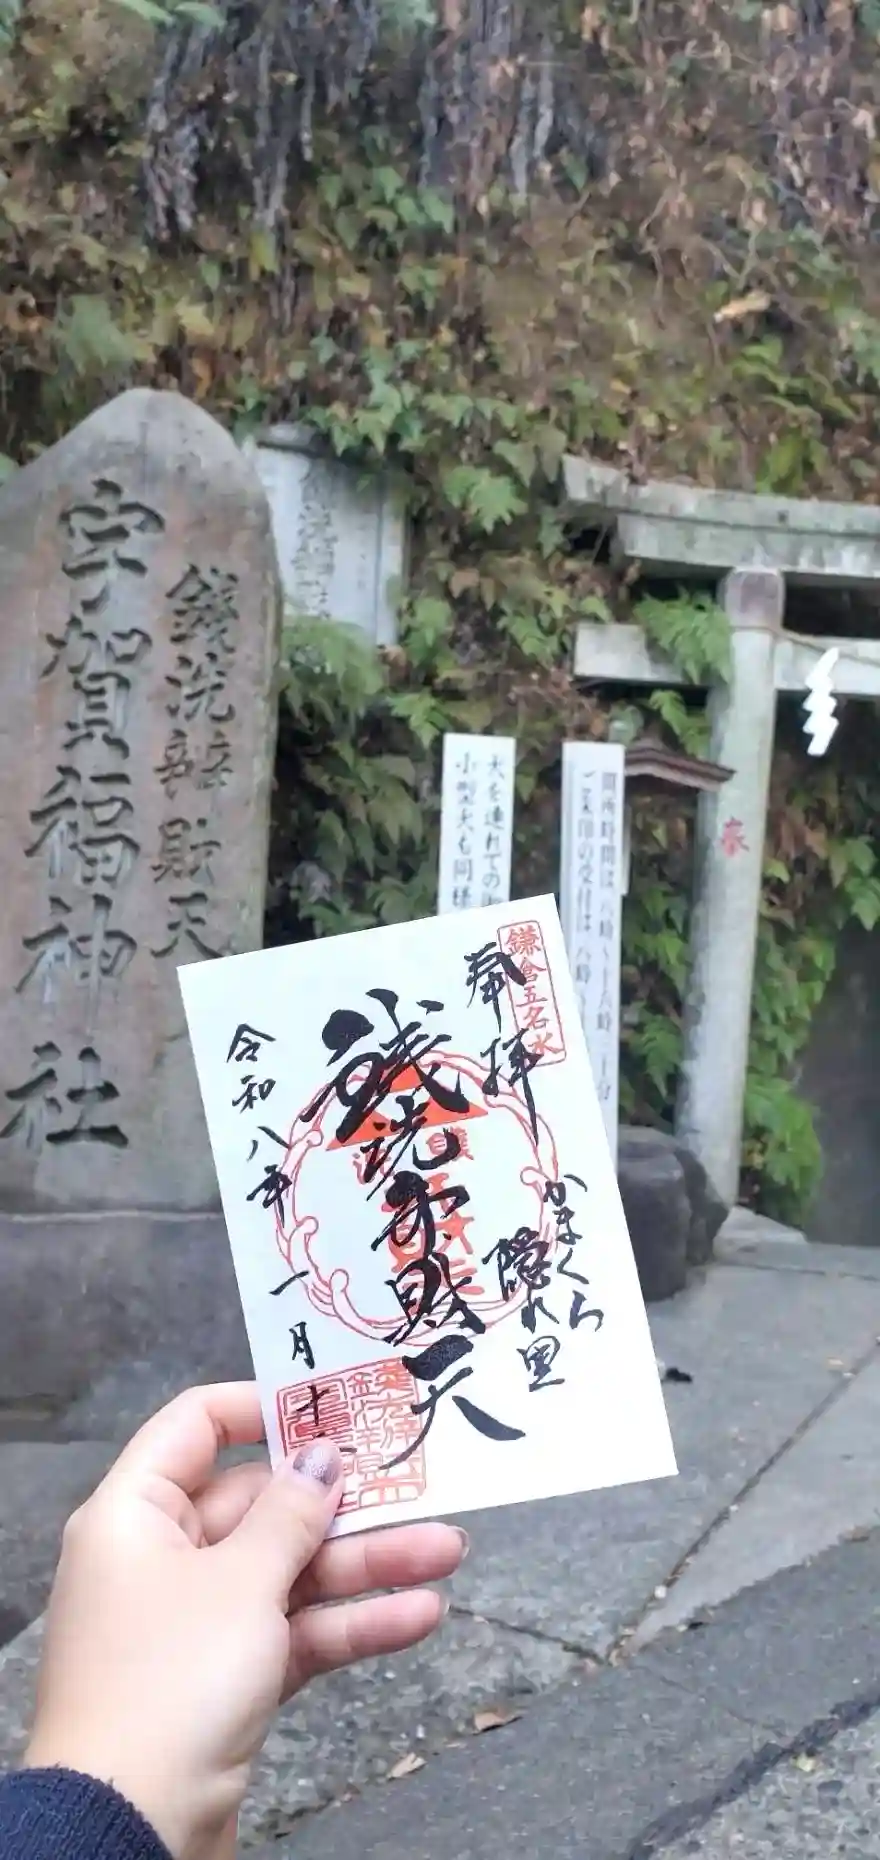 銭洗辨財天
宇賀福神社
犬を連れての
小型犬も同様
開所時間は 八時〜十六時三十分
ご朱印の受付は 八時〜
奉
鎌倉五名水
奉拝
かまくら
隠れ里
銭洗弁財天
令和八年一月十